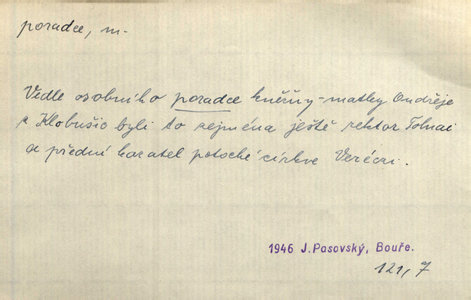 poradce, m.
Vedle osobního poradce kněžny-matky Ondřeje
z Klobušic byli to zejména ještě rektor Tolnai
a přední kazatel potocké církve Veréczi.
1946 J. Pasovský, Bouře.
121, 7